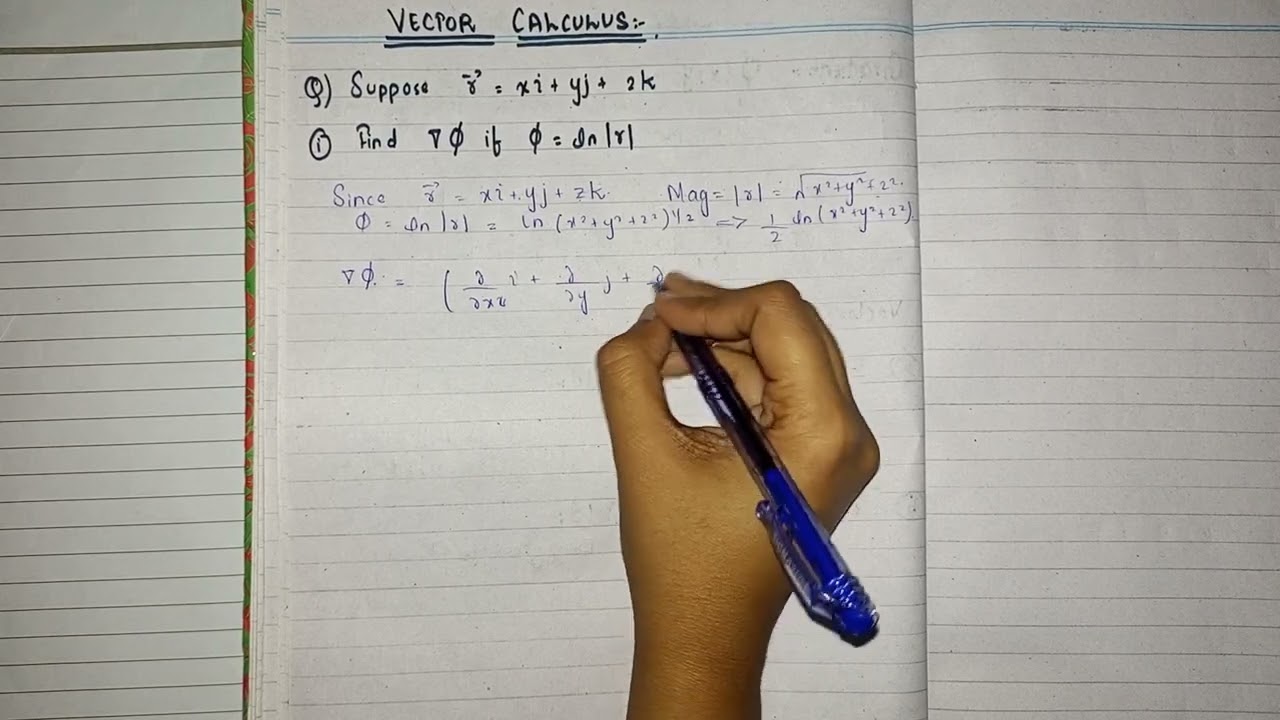 VECTOR CALCULUS:-
Q) Suppose r⃗ = xi + yj + zk
① Find ∇Ø if Ø = ln |r|
Since r⃗ = xi + yj + zk. Mag = |r| = √x²+y²+z².
Ø = ln |r| = ln (x²+y²+z²)1/2 => 1/2 ln (x²+y²+z²)
∇Ø. = (∂/∂x i + ∂/∂y j + ∂